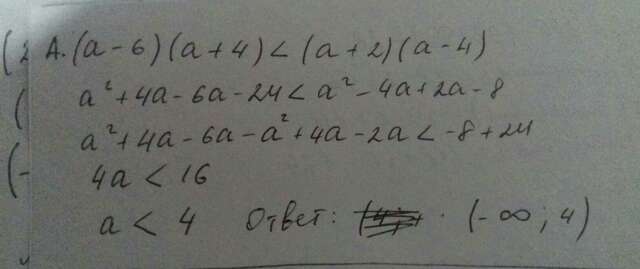 А. (a-6)(a+4) < (a+2)(a-4)
a²+4a-6a-24 < a²-4a+2a-8
a²+4a-6a-a²+4a-2a < -8+24
4a < 16
a < 4 Ответ: (-∞; 4)